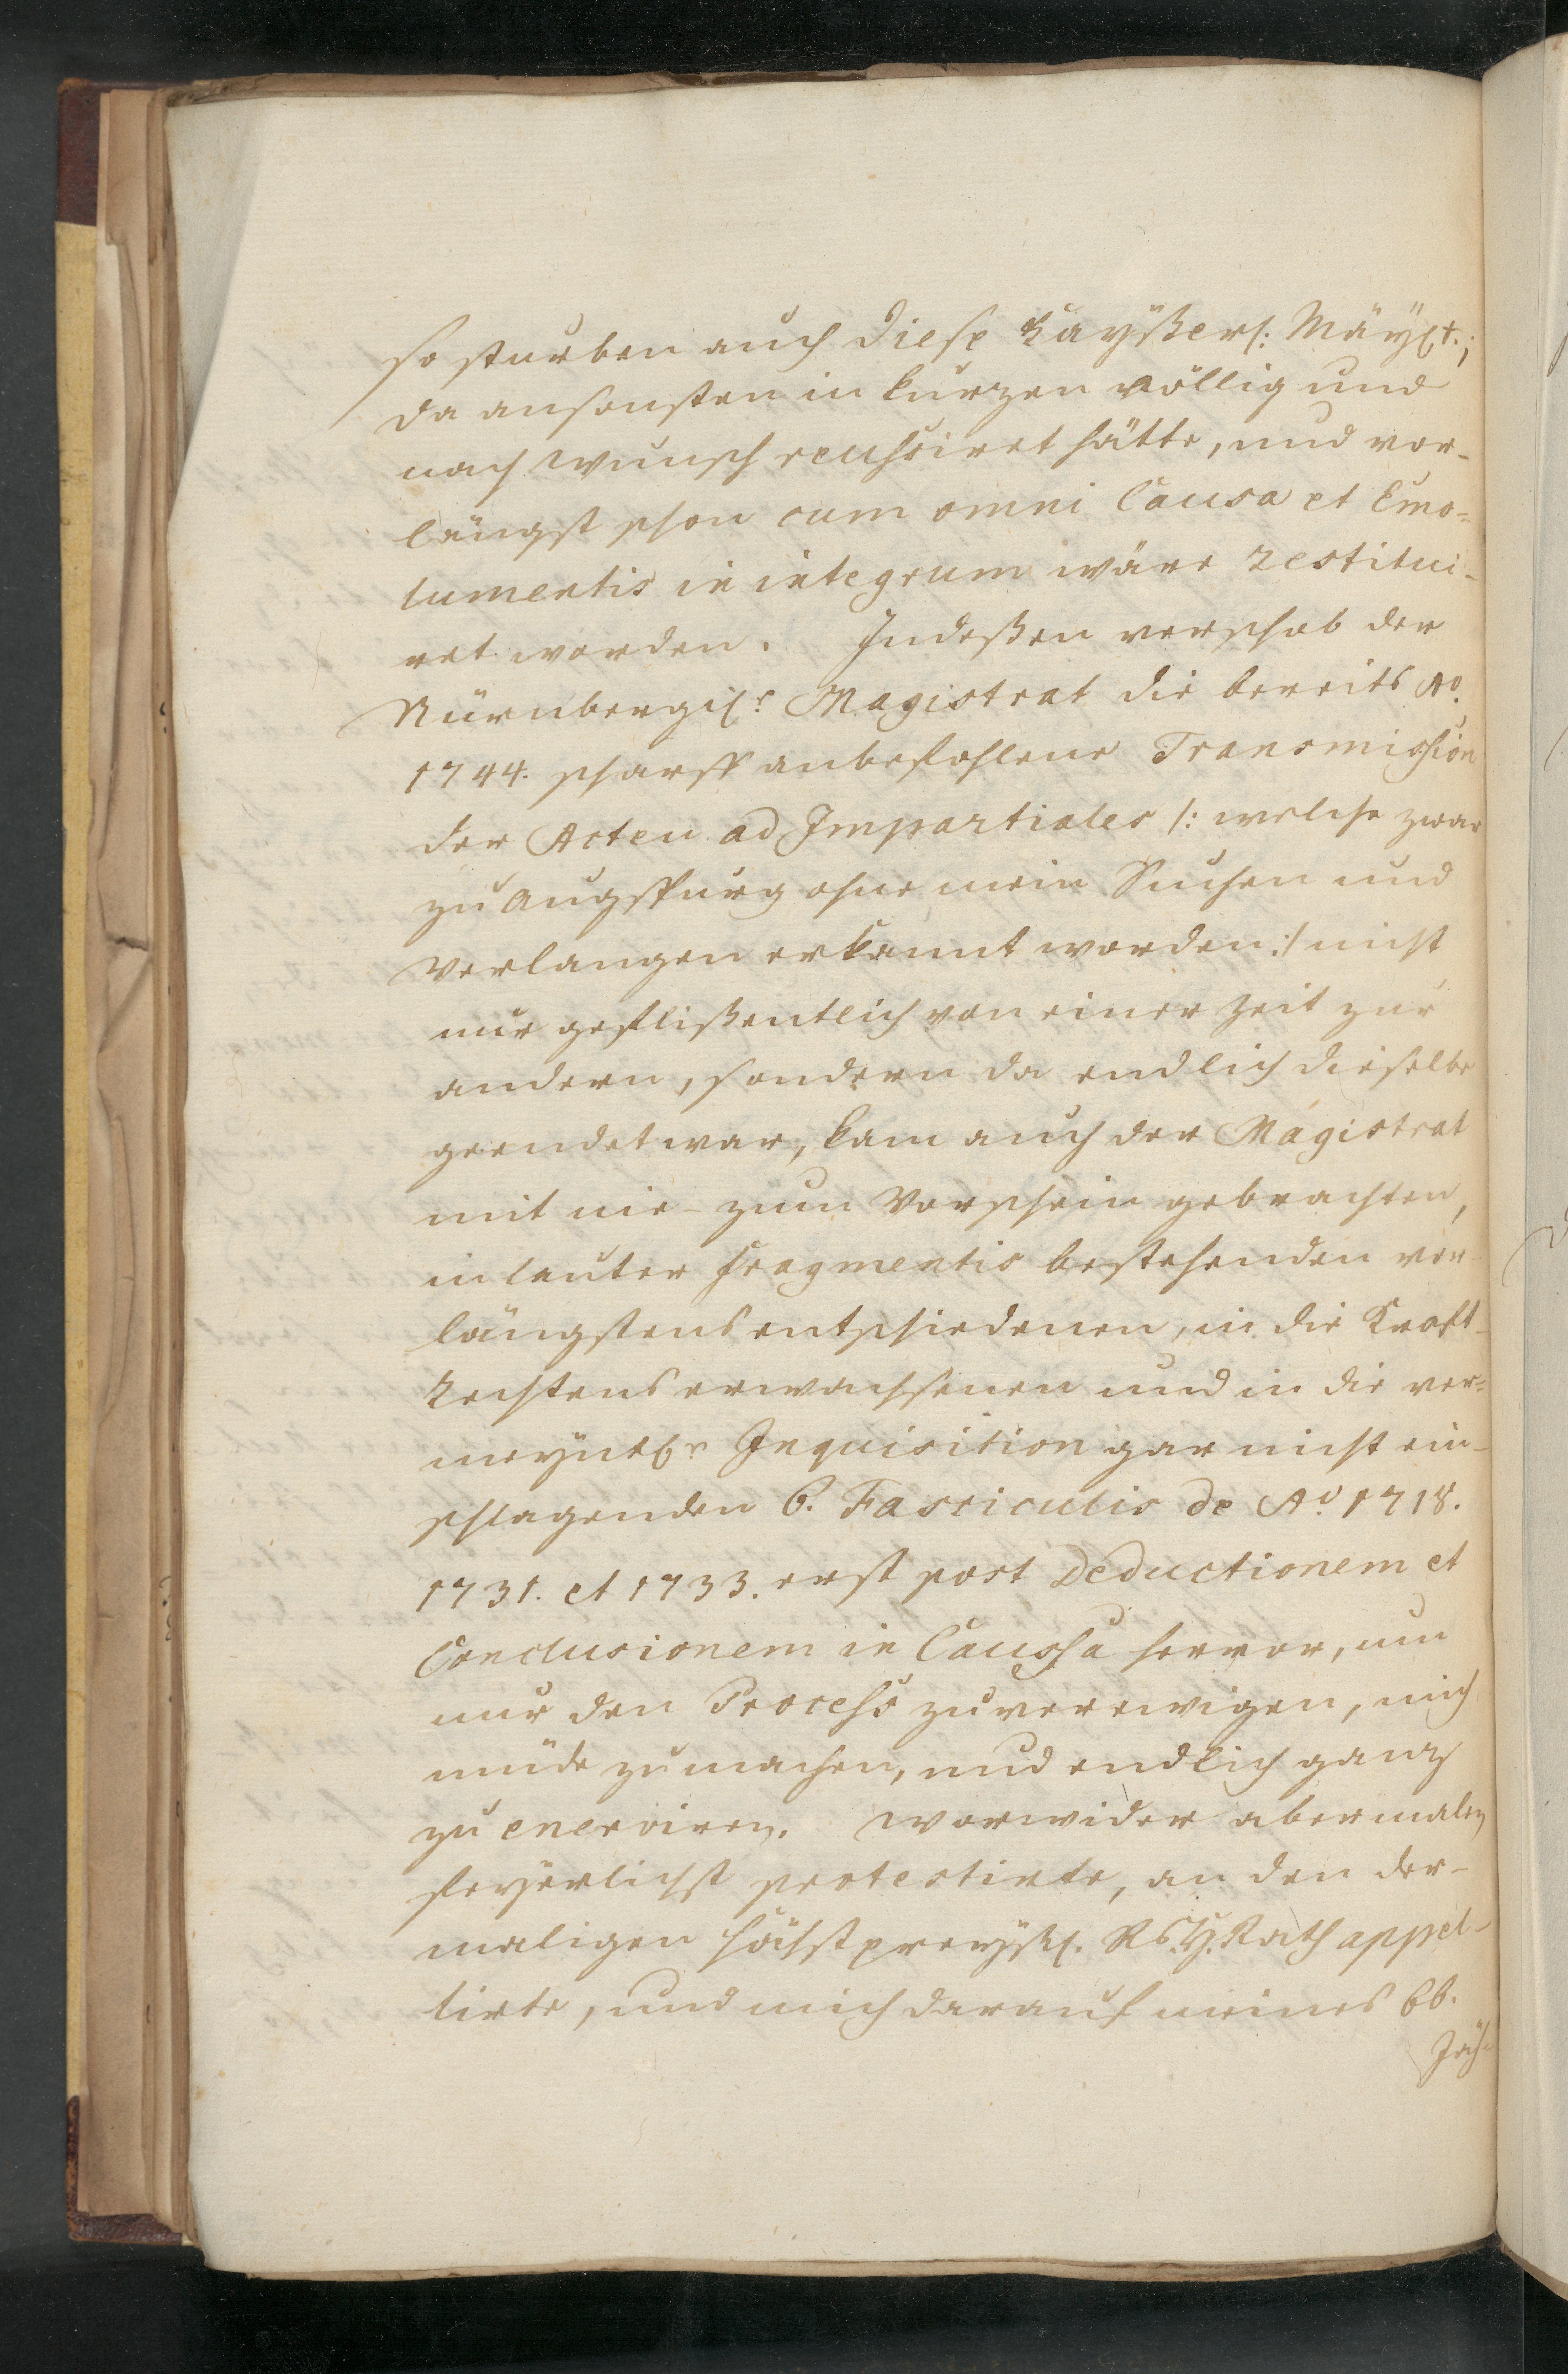 so sturben auch diese Kayßerl: Mäyst.;
da ansonsten in kurzen völlig und
nach Wunsch reussiret hätte, und vor-
längst schon cum omni Causa et Emo-
lumentis in integrum wäre restitui-
ret worden. Indeßen verschob der
Nürnbergis. Magistrat die bereits Ao.
1744. scharff anbefohlene Transmission
der Acten ad Impartiales /: welche zwar
zu Augspurg ohne mein Suchen und
Verlangen erkannt worden :/ nicht
nur geflißentlich von einer Zeit zur
andern, sondern da endlich dieselbe
geendet war, kam auch der Magistrat
mit nie- zum Vorschein gebrachten,
in lauter Fragmentis bestehenden vor-
längstens entschiedenen, in die Krafft-
Rechtens erwachsenen und in die ver-
meyntl. Inquisition gar nicht ein-
schlagenden 6. Fasciculis de Ao. 1718.
1731. et 1733. erst post Deductionem et
Conclusionem in Caussa hervor, um
nur den Process zu verewigen, mich
müde zu machen, und endlich ganz
zu enerviren. Worwider abermalen
feyerlichst protestirte, an den der-
maligen höchstpreyßl. Rs. H. Rath appel-
lirte, und mich darauf meines 66.
Jäh-